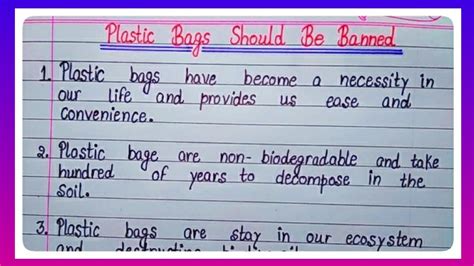 Plastic Bags Should Be Banned
1. Plastic bags have become a necessity in
our life and provides us ease and
convenience.
2. Plastic bage are non-biodegradable and take
hundred of years to decompose in the
soil.
3. Plastic bags are stay in our ecosystem
and